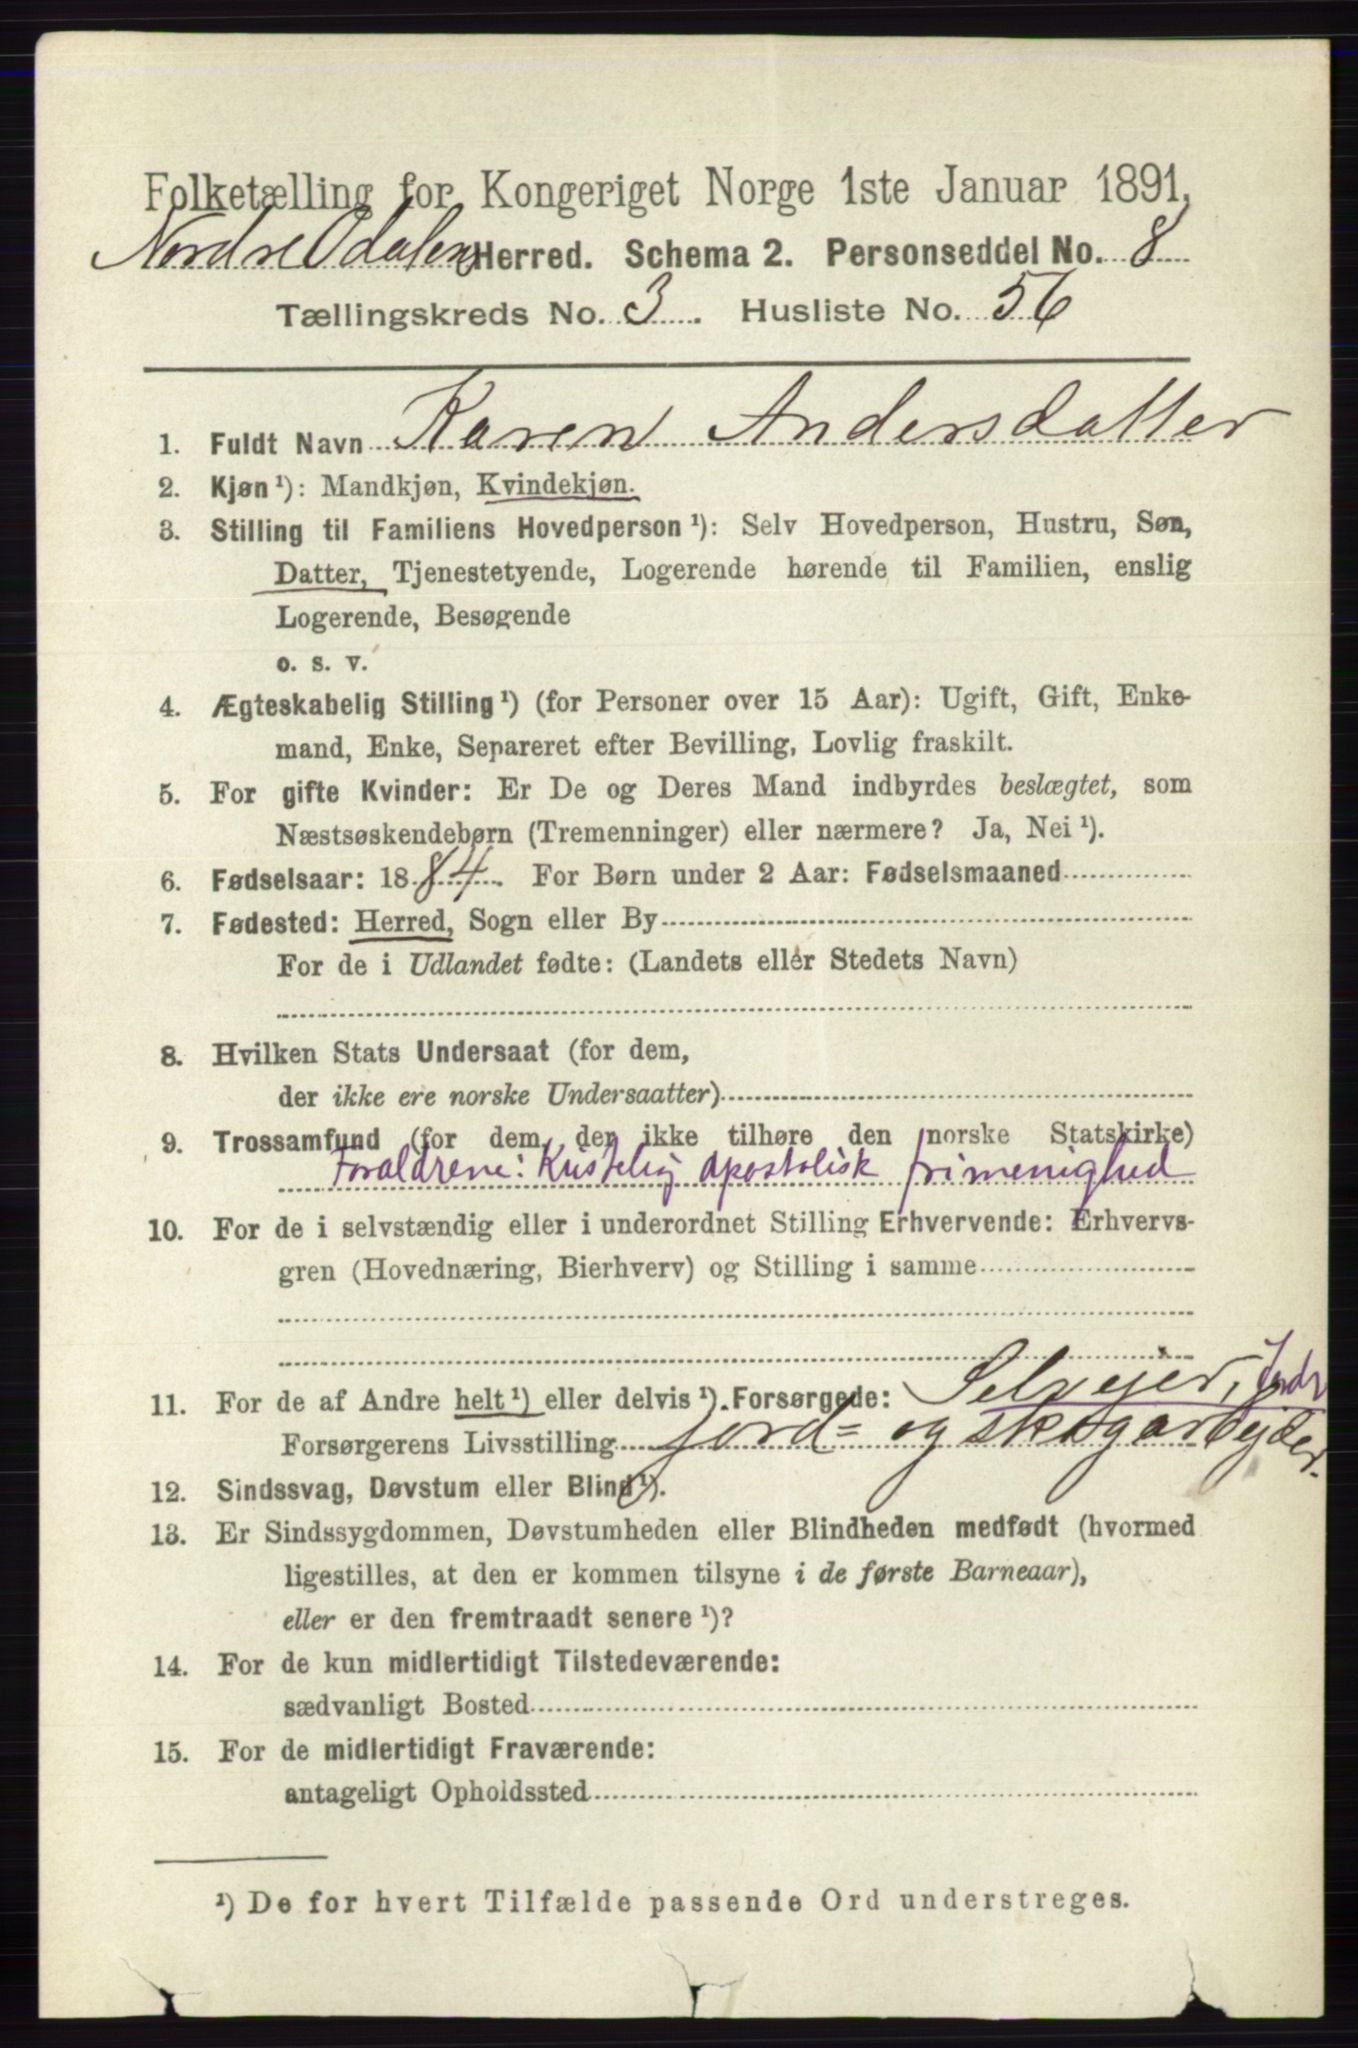 Folketælling for Kongeriget Norge 1ste Januar 1891.
Nordre Odalens Herred. Schema 2. Personseddel No. 8
Tællingskreds No. 3. Husliste No. 56
1. Fuldt Navn Karen Andersdatter
2. Kjøn ¹): Mandkjøn, Kvindekjøn.
3. Stilling til Familiens Hovedperson ¹): Selv Hovedperson, Hustru, Søn,
Datter, Tjenestetyende, Logerende hørende til Familien, enslig
Logerende, Besøgende
o. s. v.
4. Ægteskabelig Stilling ¹) (for Personer over 15 Aar): Ugift, Gift, Enke-
mand, Enke, Separeret efter Bevilling, Lovlig fraskilt.
5. For gifte Kvinder: Er De og Deres Mand indbyrdes beslægtet, som
Næstsøskendebørn (Tremenninger) eller nærmere? Ja, Nei ¹).
6. Fødselsaar: 1884. For Børn under 2 Aar: Fødselsmaaned
7. Fødested: Herred, Sogn eller By
For de i Udlandet fødte: (Landets eller Stedets Navn)
8. Hvilken Stats Undersaat (for dem,
der ikke ere norske Undersaatter)
9. Trossamfund (for dem, der ikke tilhøre den norske Statskirke)
Foraldrene: Kristelig apostolisk frimenighed
10. For de i selvstændig eller i underordnet Stilling Erhvervende: Erhvervs-
gren (Hovednæring, Bierhverv) og Stilling i samme
11. For de af Andre helt ¹) eller delvis ¹) Forsørgede: Selvejer,
Forsørgerens Livsstilling jord= og skogarbejder.
12. Sindssvag, Døvstum eller Blind ¹).
13. Er Sindssygdommen, Døvstumheden eller Blindheden medfødt (hvormed
ligestilles, at den er kommen tilsyne i de første Barneaar),
eller er den fremtraadt senere ¹)?
14. For de kun midlertidigt Tilstedeværende:
sædvanligt Bosted
15. For de midlertidigt Fraværende:
antageligt Opholdssted
¹) De for hvert Tilfælde passende Ord understreges.